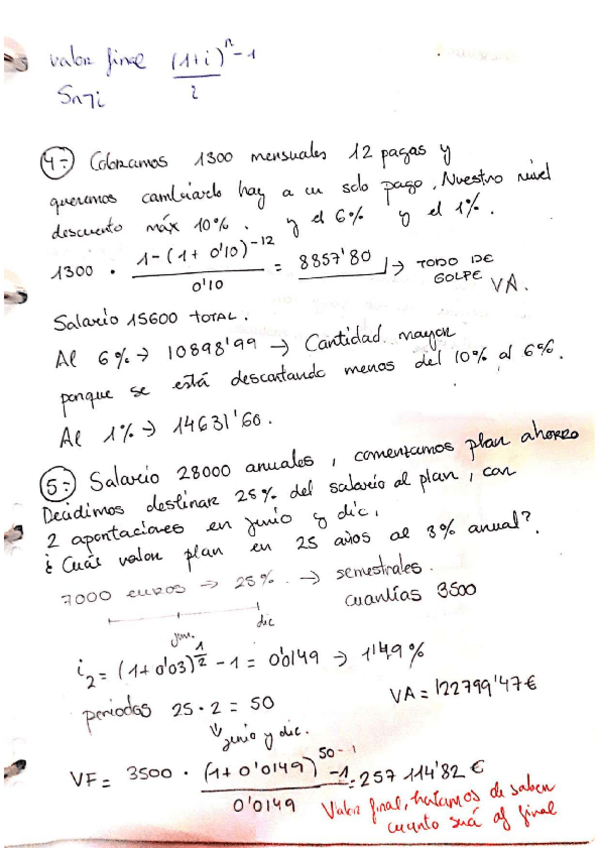 valor final (1+i)^n - 1
Sn┐i i
4:- Cobramos 1300 mensuales 12 pagas y
queremos cambiarlo hoy a un solo pago. Nuestro nivel
descuento máx 10%. y el 6% y el 1%.
1300 · 1-(1+0'10)^-12 = 8857'80 → TODO DE
0'10 GOLPE VA.
Salario 15600 TOTAL.
Al 6% → 10898'99 → Cantidad mayor
porque se está descontando menos del 10% al 6%.
Al 1% → 14631'60.
5:- Salario 28000 anuales, comenzamos plan ahorro
Decidimos destinar 25% del salario al plan, con
2 aportaciones en junio y dic.
¿Cuál valor plan en 25 años al 3% anual?
7000 euros → 25%. → semestrales.
cuantías 3500
jun. dic
i2 = (1+0'03)^1/2 - 1 = 0'0149 → 1'49%
periodos 25·2 = 50 VA = 122799'47€
junio y dic.
VF = 3500 · (1+0'0149)^50 - 1 = 257 114'82 €
0'0149 Valor final, de saber
cuanto será al final